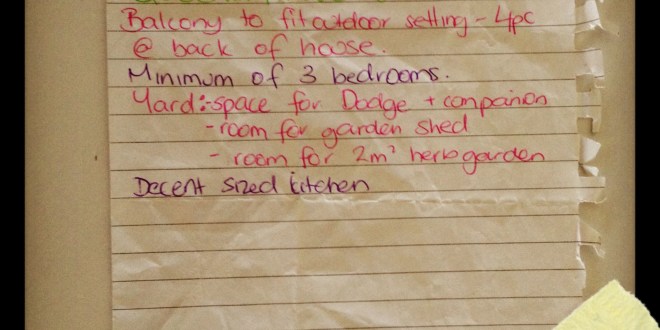 Balcony to fit outdoor setting - 4pc
@ back of house.
Minimum of 3 bedrooms.
Yard:-space for Dodge + companion
- room for garden shed
- room for 2m² herb garden
Decent sized kitchen